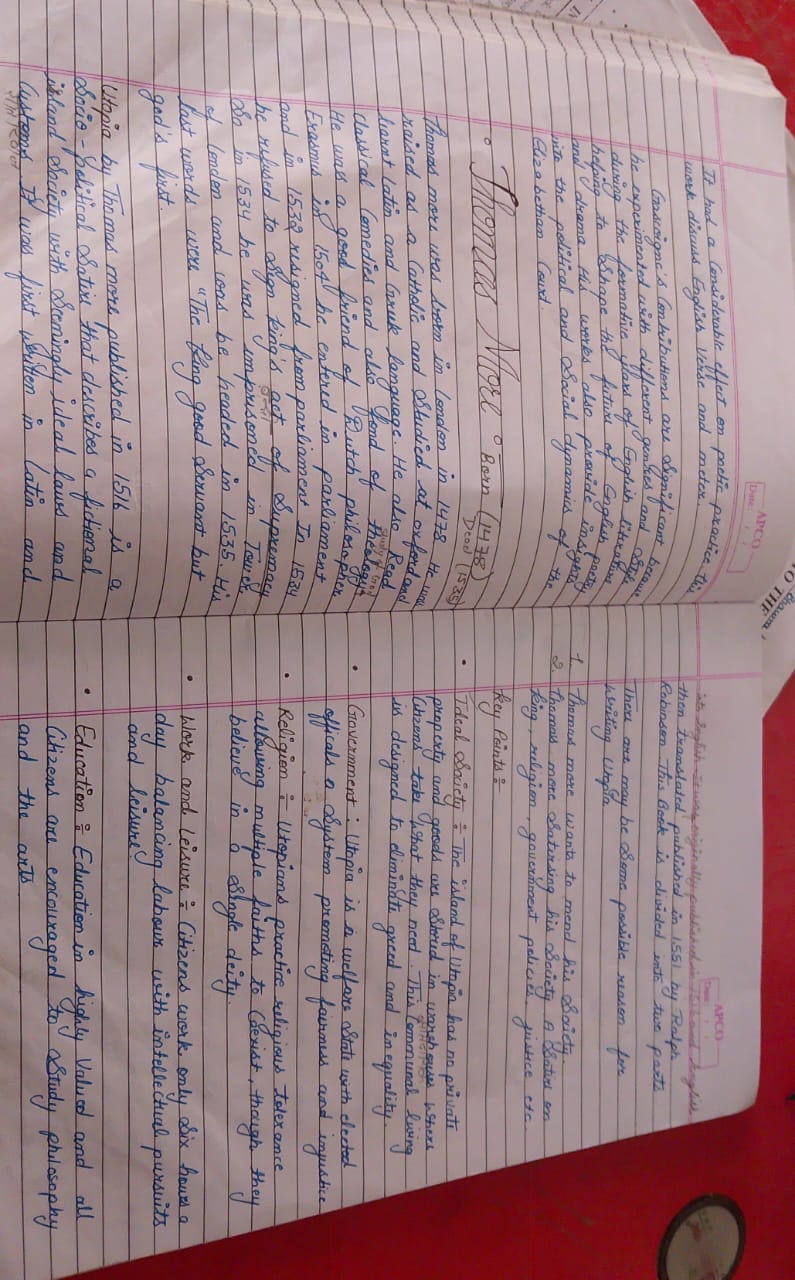 APCO
Date:
It had a Considerable effect on poetic practice this
work discuss English Verse and meter.
Gascoigne's Contributions are Significant because
he experimented with different genres and Style
during the formative years of English literature
helping to Shape the future of English poetry
and drama His works also provide insights
into the political and Social dynamics of the
Elizabethan Court.
Thomas More : Born (1478)
Dead (1535)
Thomas more was born in London in 1478 He was
raised as a Catholic and Studied at oxford and
learnt latin and Greek language. He also Read
classical Comedies and also fond of theology
study of God
He was a good friend of Dutch philosopher
Erasmus in 1504 he entered in parliament
and in 1532 resigned from parliament In 1534
he refused to Sign King's act of Supremacy
So in 1534 he was imprisoned in Tower
of London and was be headed in 1535. His
last words were "The king good Servant but
god's first.
Utopia by Thomas more published in 1516 is a
Socio-political Satire that describes a fictional
island Society with Seemingly ideal laws and
Customs It was first written in Latin and
APCO
Date:
into English It was originally published in 1516 and English
then translated published in 1551 by Ralph
Robinson This Book is divided into two parts
There are may be Some possible reason for
writing Utopia
1. Thomas more wants to mend his Society.
2. Thomas more Satirsing his Society A Satire on
King, religion, government policies, justice etc.
Key Points :
Ideal Society : The island of Utopia has no private
property and goods are Stored in warehouses where
Citizens take what they need. This Communal living
is designed to eliminate greed and inequality.
Government : Utopia is a welfare State with elected
officials a System promoting fairness and injustice
Religion : Utopians practice religious tolerance
allowing multiple faiths to Coexist, though they
believe in a Single deity.
Work and Leisure : Citizens work only Six hours a
day balancing labour with intellectual pursuits
and leisure
Education : Education in highly Valued and all
Citizens are encouraged to Study philosophy
and the arts
TO THE